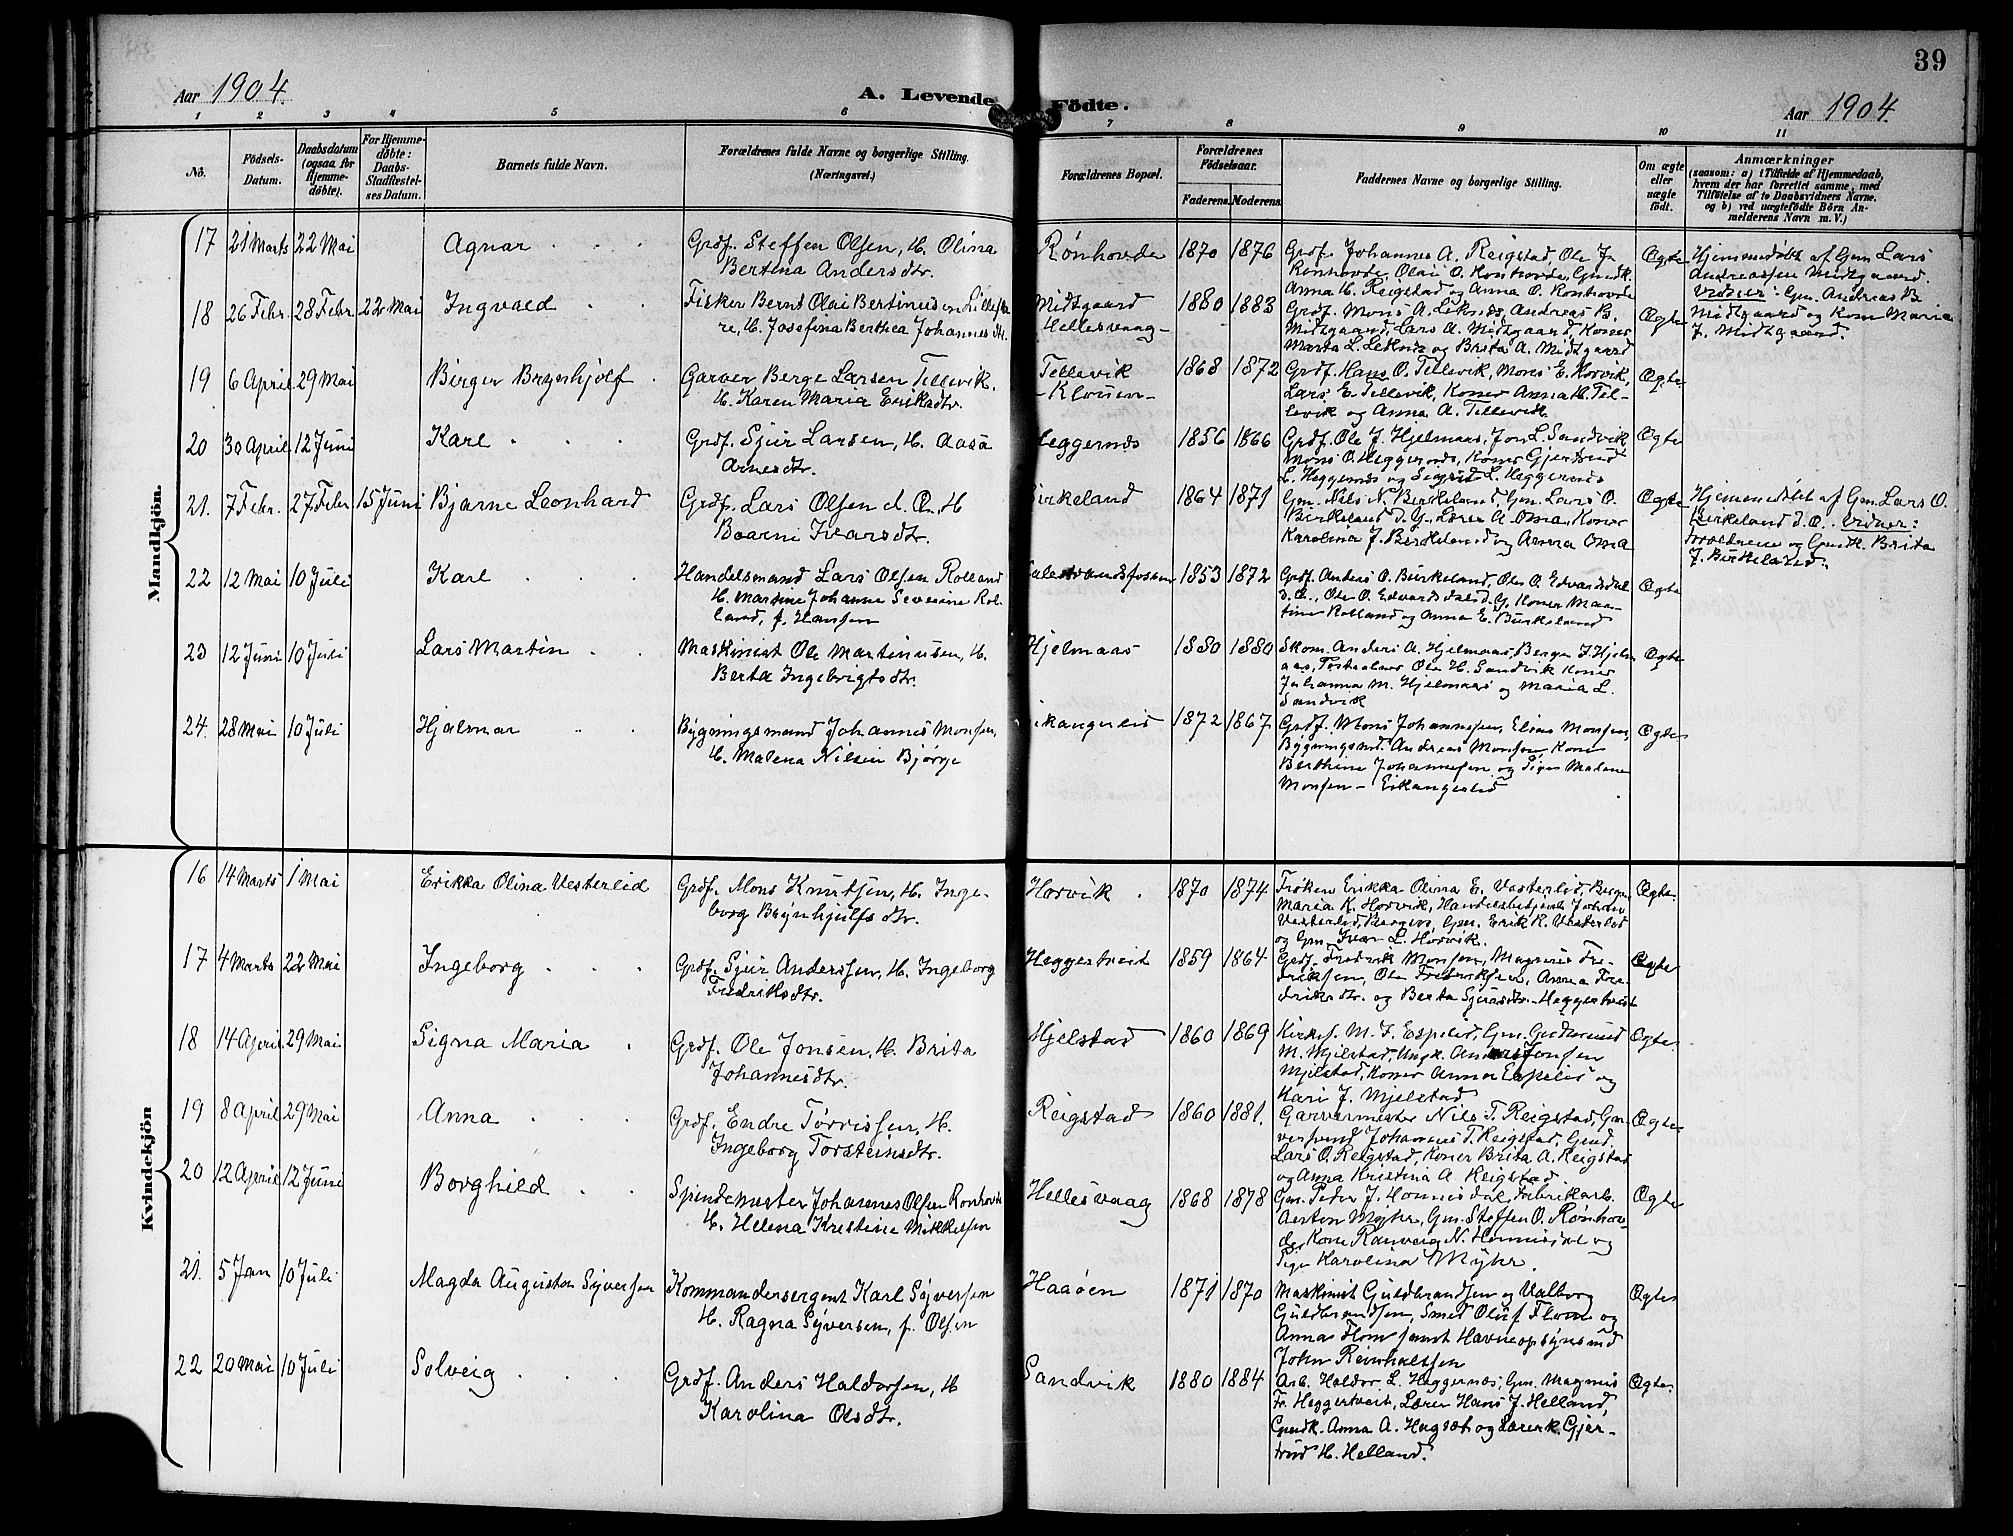 39
Aar 1904.
A. Levende Födte.
Aar 1904.
1 2 3 4 5 6 7 8 9 10 11
No.
Födsels-Datum.
Daabsdatum (ogsaa for Hjemme-döbte).
For Hjemme-döbte: Daabs-Stadfæstel-ses Datum.
Barnets fulde Navn.
Forældrenes fulde Navne og borgerlige Stilling.
(Næringsvei.)
Forældrenes Bopæl.
Forældrenes Födselsaar.
Faderens. Moderens.
Faddernes Navne og borgerlige Stilling.
Om ægte eller uægte födt.
Anmærkninger
(saasom: a) i Tilfælde af Hjemmedaab, hvem der har forrettet samme, med Tilföielse af to Daabsvidners Navne, og b) ved uægtefödte Börn An-melderens Navn m. V.)
Mandkjön.
17 21 Marts 22 Mai Agnar Grdf. Steffen Olsen, H. Olina
Bertina Andersdtr. Rønhovde 1870 1876
Grdf. Johannes A. Reigstad, Ole J.
Rønhovde, Olai O. Rønhovde, Gmdk.
Anna H. Reigstad og Anna O. Rønhovde Ægte
18 26 Febr. 28 Febr. 22 Mai Ingvald Fisker Bernt Olai Bertinussen Lilleskare,
H. Josefina Berthea Johannesdtr. Midtgaard
Hellesvaag 1880 1883
Grdf. Mons A. Leknes, Andreas B.
Midtgaard, Lars A. Midtgaard, Koner
Marta L. Leknes og Brita A. Midtgaard Ægte
Hjemmedøbt af Gm. Lars
Andreassen Midtgaard.
Vidner: Gm. Andreas B.
Midtgaard og Kone Maria
J. Midtgaard.
19 6 April 29 Mai Birger Brynhjolf Garver Berge Larsen Tellevik.
H. Karen Maria Eriksdtr. Tellevik
- Klouen - 1868 1872
Grdf. Hans O. Tellevik, Mons E. Horvik,
Lars E. Tellevik, Koner Anna H. Tellevik
og Anna A. Tellevik Ægte
20 30 April 12 Juni Karl Grdf. Sjur Larsen, H. Aasa
Arnesdtr. Heggernes 1856 1866
Grdf. Ole J. Hjelmaas, Jon L. Sandvik
Mons O. Heggernes, Koner Gjertrud
L. Heggernes og Sigrid L. Heggernes Ægte
21. 7 Febr. 27 Febr 15 Juni Bjarne Leonhard Grdf. Lars Olsen d. Æ., H.
Baarni Ivarsdtr. Birkeland 1864 1871
Gm. Nils N. Birkeland, Gm. Lars O.
Birkeland d. Y. Lærer A. Oma, Koner
Karolina J. Birkeland og Anna Oma Ægte
Hjemmedøbt af Gm. Lars O.
Birkeland d. Æ. Vidner:
Forældrene og Gmdk. Brita
J. Birkeland.
22 12 Mai 10 Juli Karl Handelsmand Lars Olsen Rolland
H. Martine Johanne Severine Rolland,
f. Hansen 1853 1872
Grdf. Anders O. Birkeland, Ole O. Edvardsdal
d. Æ., Ole O. Edvardsdal d. Y. Koner Martine
Rolland og Anna E. Birkeland Ægte
23 12 Juni 10 Juli Lars Martin Maskinist Ole Martinusen, H.
Berta Ingebrigtsdtr. Hjelmaas 1880 1880
Skom. Anders A. Hjelmaas, Berge J. Hjelmaas,
Ole H. Sandvik Koner
Johanna M. Hjelmaas og Maria L.
Sandvik Ægte
24. 28 Mai 10 Juli Hjalmar Bygningsmand Johannes Monsen,
H. Malena Nilsen Bjørge Eikangerleid 1872 1867
Grdf. Mons Johannessen, Elias Monsen,
Bygningsmd. Andreas Monsen, Kone
Berthine Johannesen og Pige Malene
Monsen - Eikangerleid Ægte
Kvindekjön
16 14 Marts 1 Mai Erikka Olina Vesterleid Grdf. Mons Knutsen, H. Ingeborg
Brynhjulfsdtr. Horvik 1870 1874
Frøken Erikka Olina E. Vesterleid, Bergen
Maria K. Horvik, Handelsbetjent Johan
Vesterleid, Bergen, Gm. Erik K. Vesterleid
og Gm. Ivar L. Horvik. Ægte
17 4 Marts 22 Mai Ingeborg Grdf. Sjur Anderssen, H. Ingeborg
Fredriksdtr. Heggestveit 1859 1864
Grdf. Fredrik Monsen, Magnus Fredriksen,
Ole Fredriksen, Anna Fredriksdtr.
og Berta Sjursdtr. Heggertveit Ægte
18 14 April 29 Mai Signa Maria Grdf. Ole Jonsen, H. Brita
Johannesdtr. Mjelstad 1860 1869
Kirkes. M. J. Espelid, Gm. Gudmund
M. Mjelstad, Ungk. Anders Jonsen
Mjelstad, Koner Anna Espelid og
Kari J. Mjelstad Ægte
19 8 April 29 Mai Anna Grdf. Endre Torrissen, H.
Ingeborg Torsteinsdtr. Reigstad 1860 1881.
Garvermester Nils T. Reigstad, Garversvend
Johannes T. Reigstad, Gmd.
Lars O. Reigstad, Koner Brita A. Reigstad
og Anna Kristina A. Reigstad. Ægte
20 12 April 12 Juni Borghild Spindemester Johannes Olsen Rønhovde
H. Helena Kristine Mikkelsen Hellesvaag 1868 1878
Gm. Peder J. Honnisdal, Fabrikarb.
Aerton Myhr, Gm. Steffen O. Rønhovde,
Kone Ranveig N. Honnisdal og
Pige Karolina Myhr. Ægte
21. 5 Jan 10 Juli Magda Augusta Syversen Kommandersergent Karl Syversen
H. Ragna Syversen, f. Olsen Haaøen 1871 1870
Maskinist Guldbrandsen og Valborg
Guldbrandsen, Smed Oluf Flom og
Anna Flom samt Havneopsynsmd
John Reinholtsen Ægte
22 20 Mai 10 Juli Solveig Grdf. Anders Haldorsen, H.
Karolina Olsdtr. Sandvik 1880 1884
Arb. Haldor L. Heggernæs, Gm. Magnus
Fr. Heggertveit, Lærer Hans J. Helland,
Gmdk. Anna A. Hagsæt og Lærerk. Gjertrud
H. Helland. Ægte